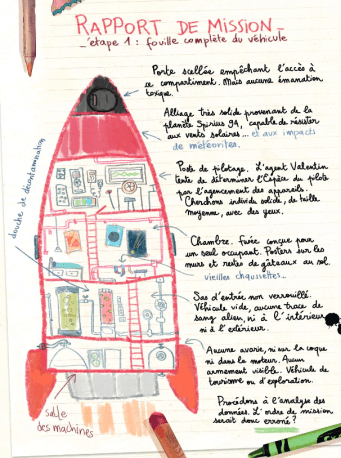 RAPPORT DE MISSION
étape 1 : fouille complète du véhicule
Porte scellée empêchant l'accès à
ce compartiment. Mais aucune émanation
toxique.
Alliage très solide provenant de la
planète Spirius 9A, capable de résister
aux vents solaires... et aux impacts
de météorites.
douche de décontamination
Poste de pilotage. L'agent Valentin
tente de déterminer l'espèce du pilote
par l'agencement des appareils.
Cherchons individu solide, de taille
moyenne, avec des yeux.
Chambre. Fusée conçue pour
un seul occupant. Posters sur les
murs et restes de gâteaux au sol.
vieilles chaussettes...
Sas d'entrée non verrouillé.
Véhicule vide, aucune trace de
sang alien, ni à l'intérieur
ni à l'extérieur.
Aucune avarie, ni sur la coque
ni dans le moteur. Aucun
armement visible. Véhicule de
tourisme ou d'exploration.
salle
des machines
Procédons à l'analyse des
données. L'ordre de mission
serait donc erroné ?